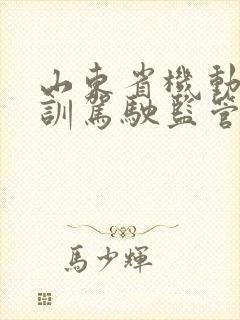 山东省機動
訓駕駛監管
馬少輝